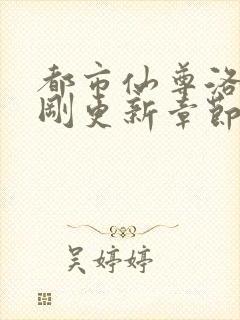 都市仙尊洛
刚更新章节
吴婷婷